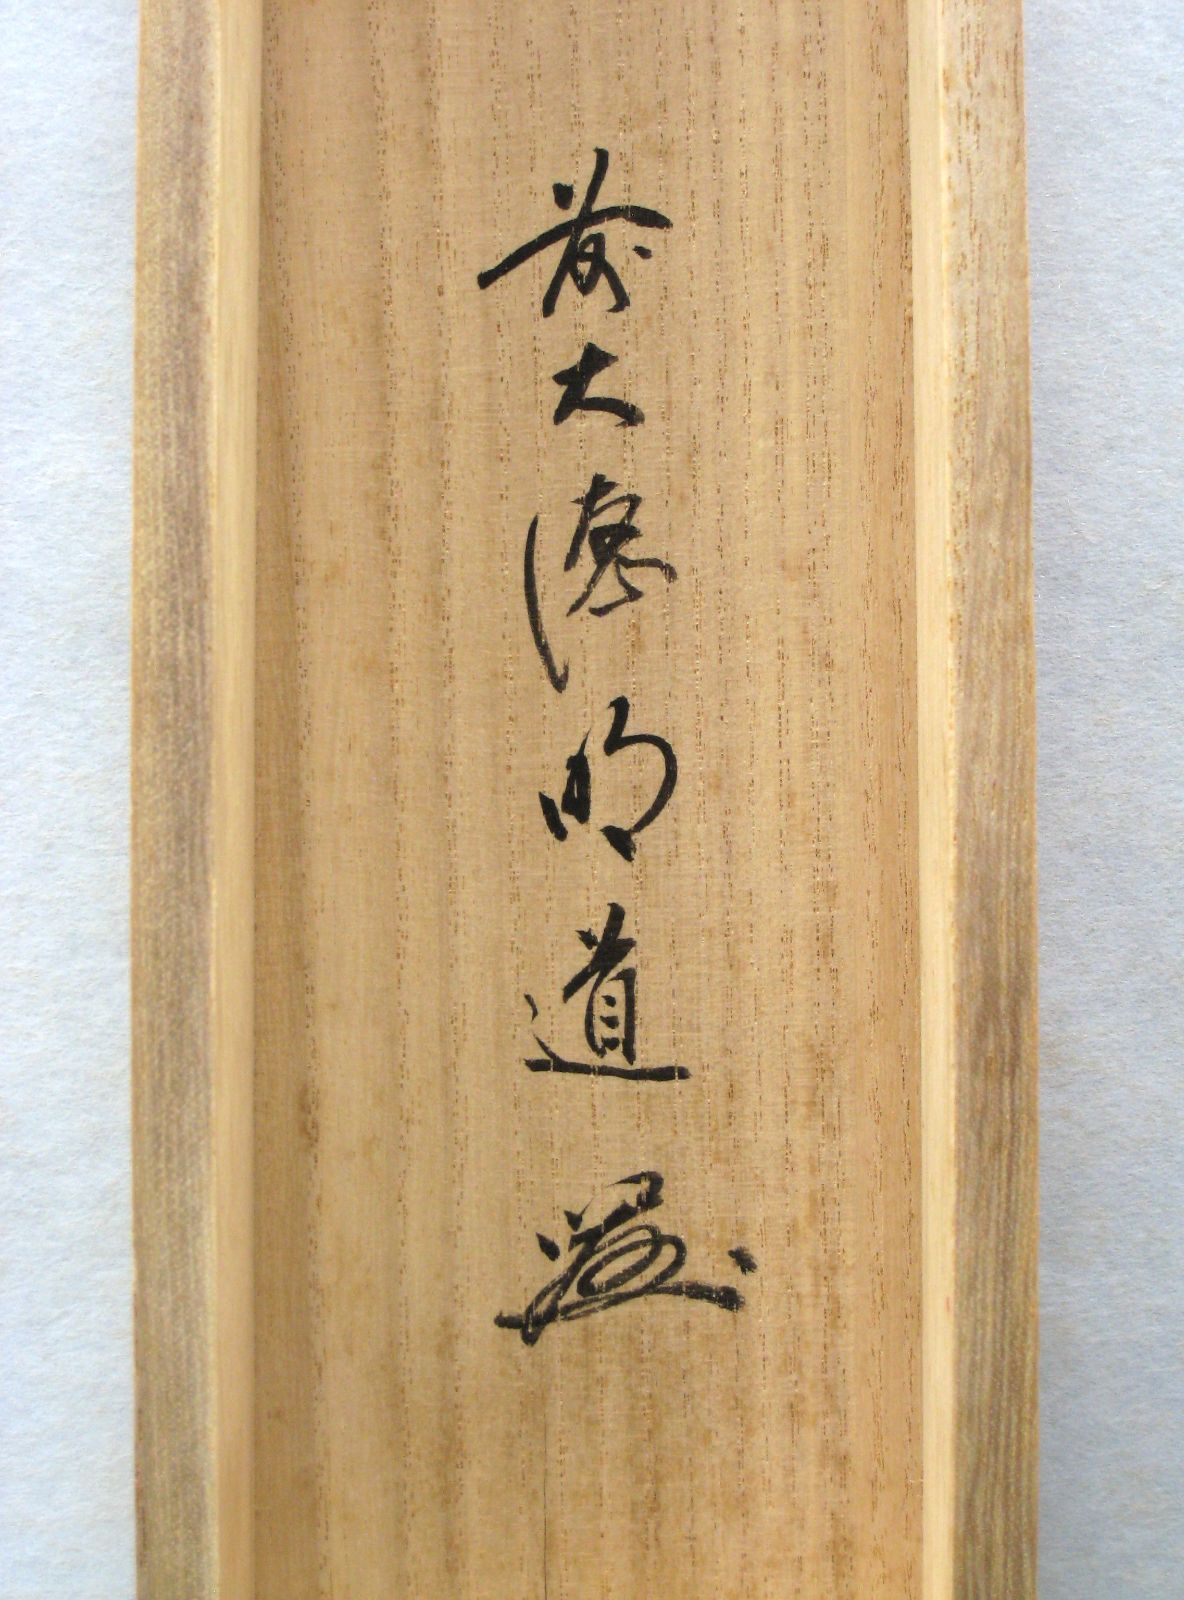 前大徳明道